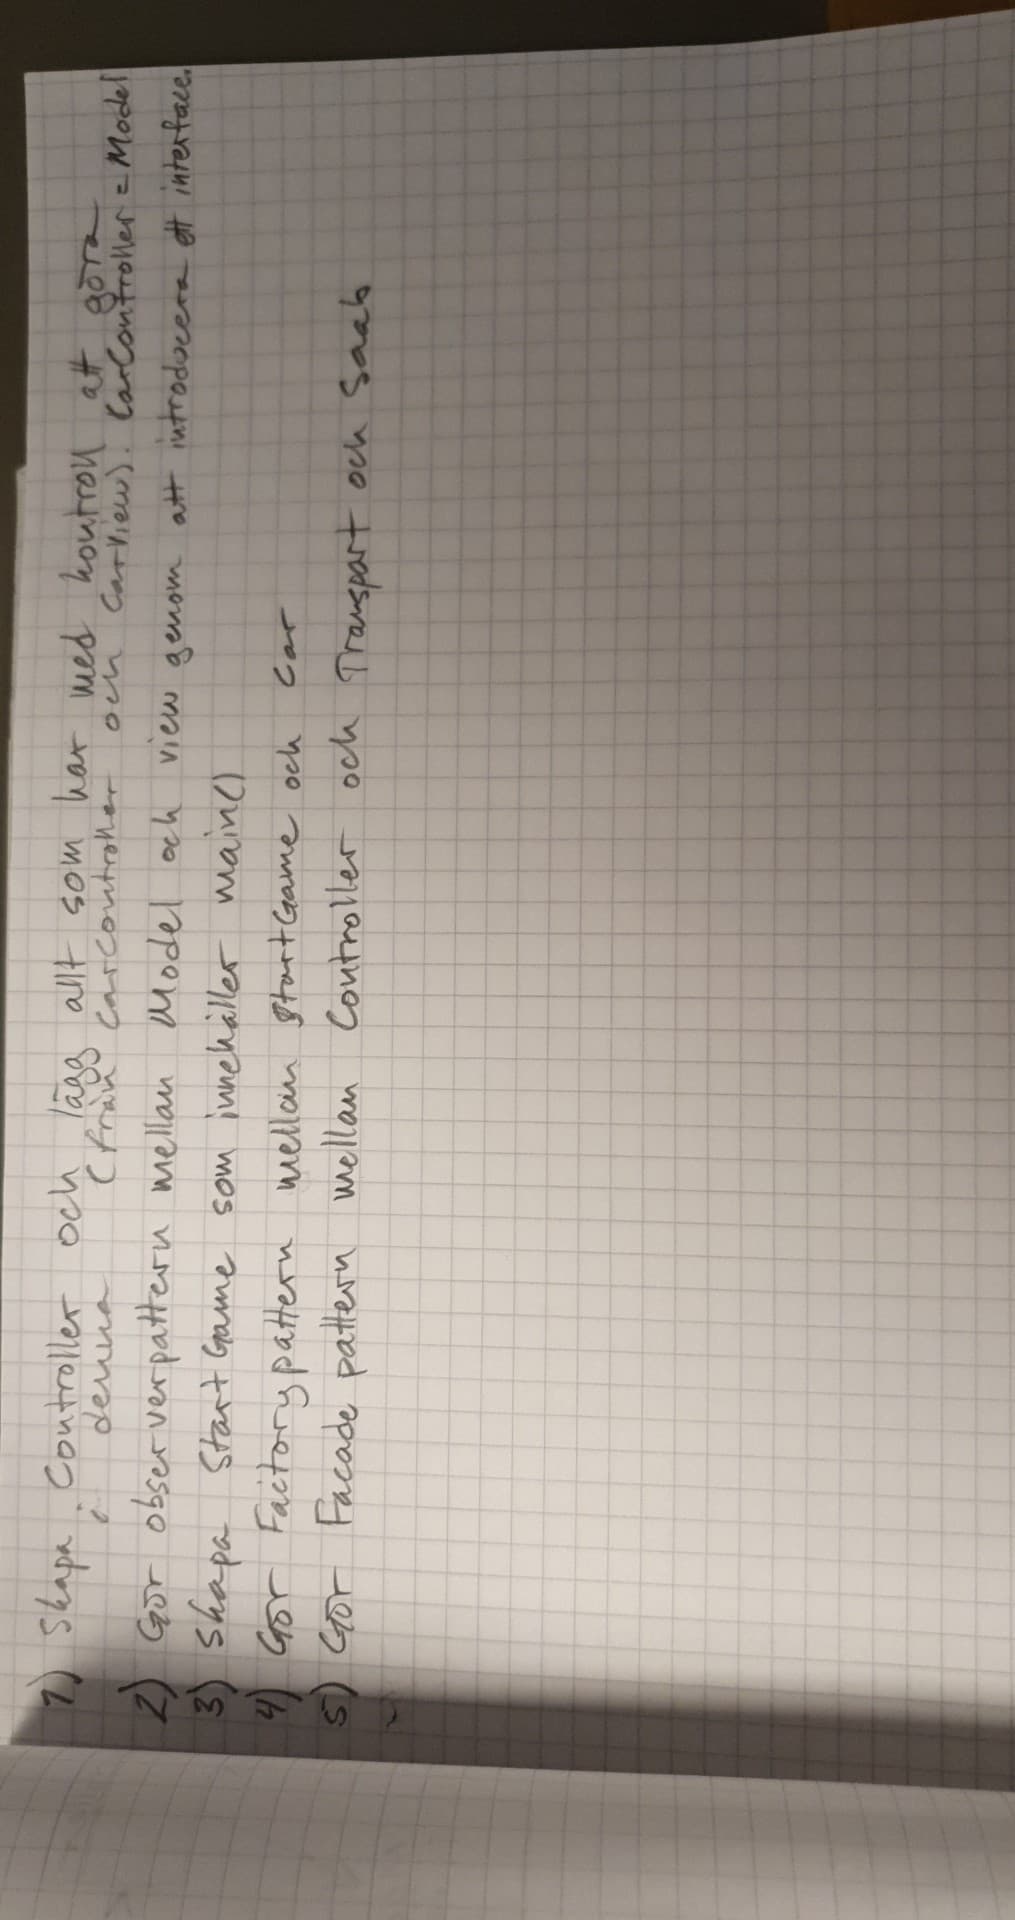 1) Skapa Controller och lägg allt som har med kontroll att göra
i denna (från CarController och CarView). CarController = Model
2) Gör observerpattern mellan Model och view genom att introducera ett interface.
3) Skapa StartGame som innehåller main()
4) Gör Factorypattern mellan StartGame och Car
5) Gör Facade pattern mellan Controller och Transport och Saab